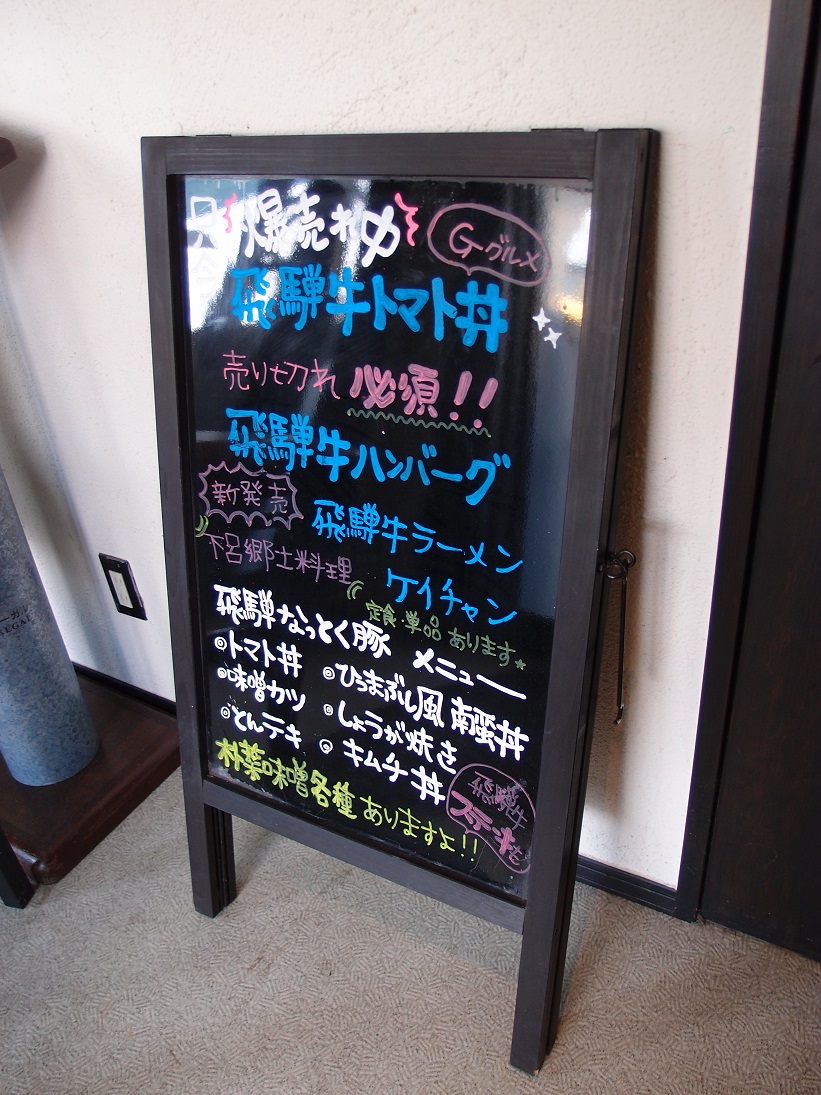 爆売れ中
Gグルメ
飛騨牛トマト丼
売り切れ 必須!!
飛騨牛ハンバーグ
新発売
飛騨牛ラーメン
下呂郷土料理
ケイチャン
定食・単品 あります
飛騨なっとく豚 メニュー
◎トマト丼
◎味噌カツ
◎とんテキ
◎ひつまぶし風 南蛮丼
◎しょうが焼き
◎キムチ丼
朴葉味噌各種 ありますよ!!
飛騨牛
ステーキも